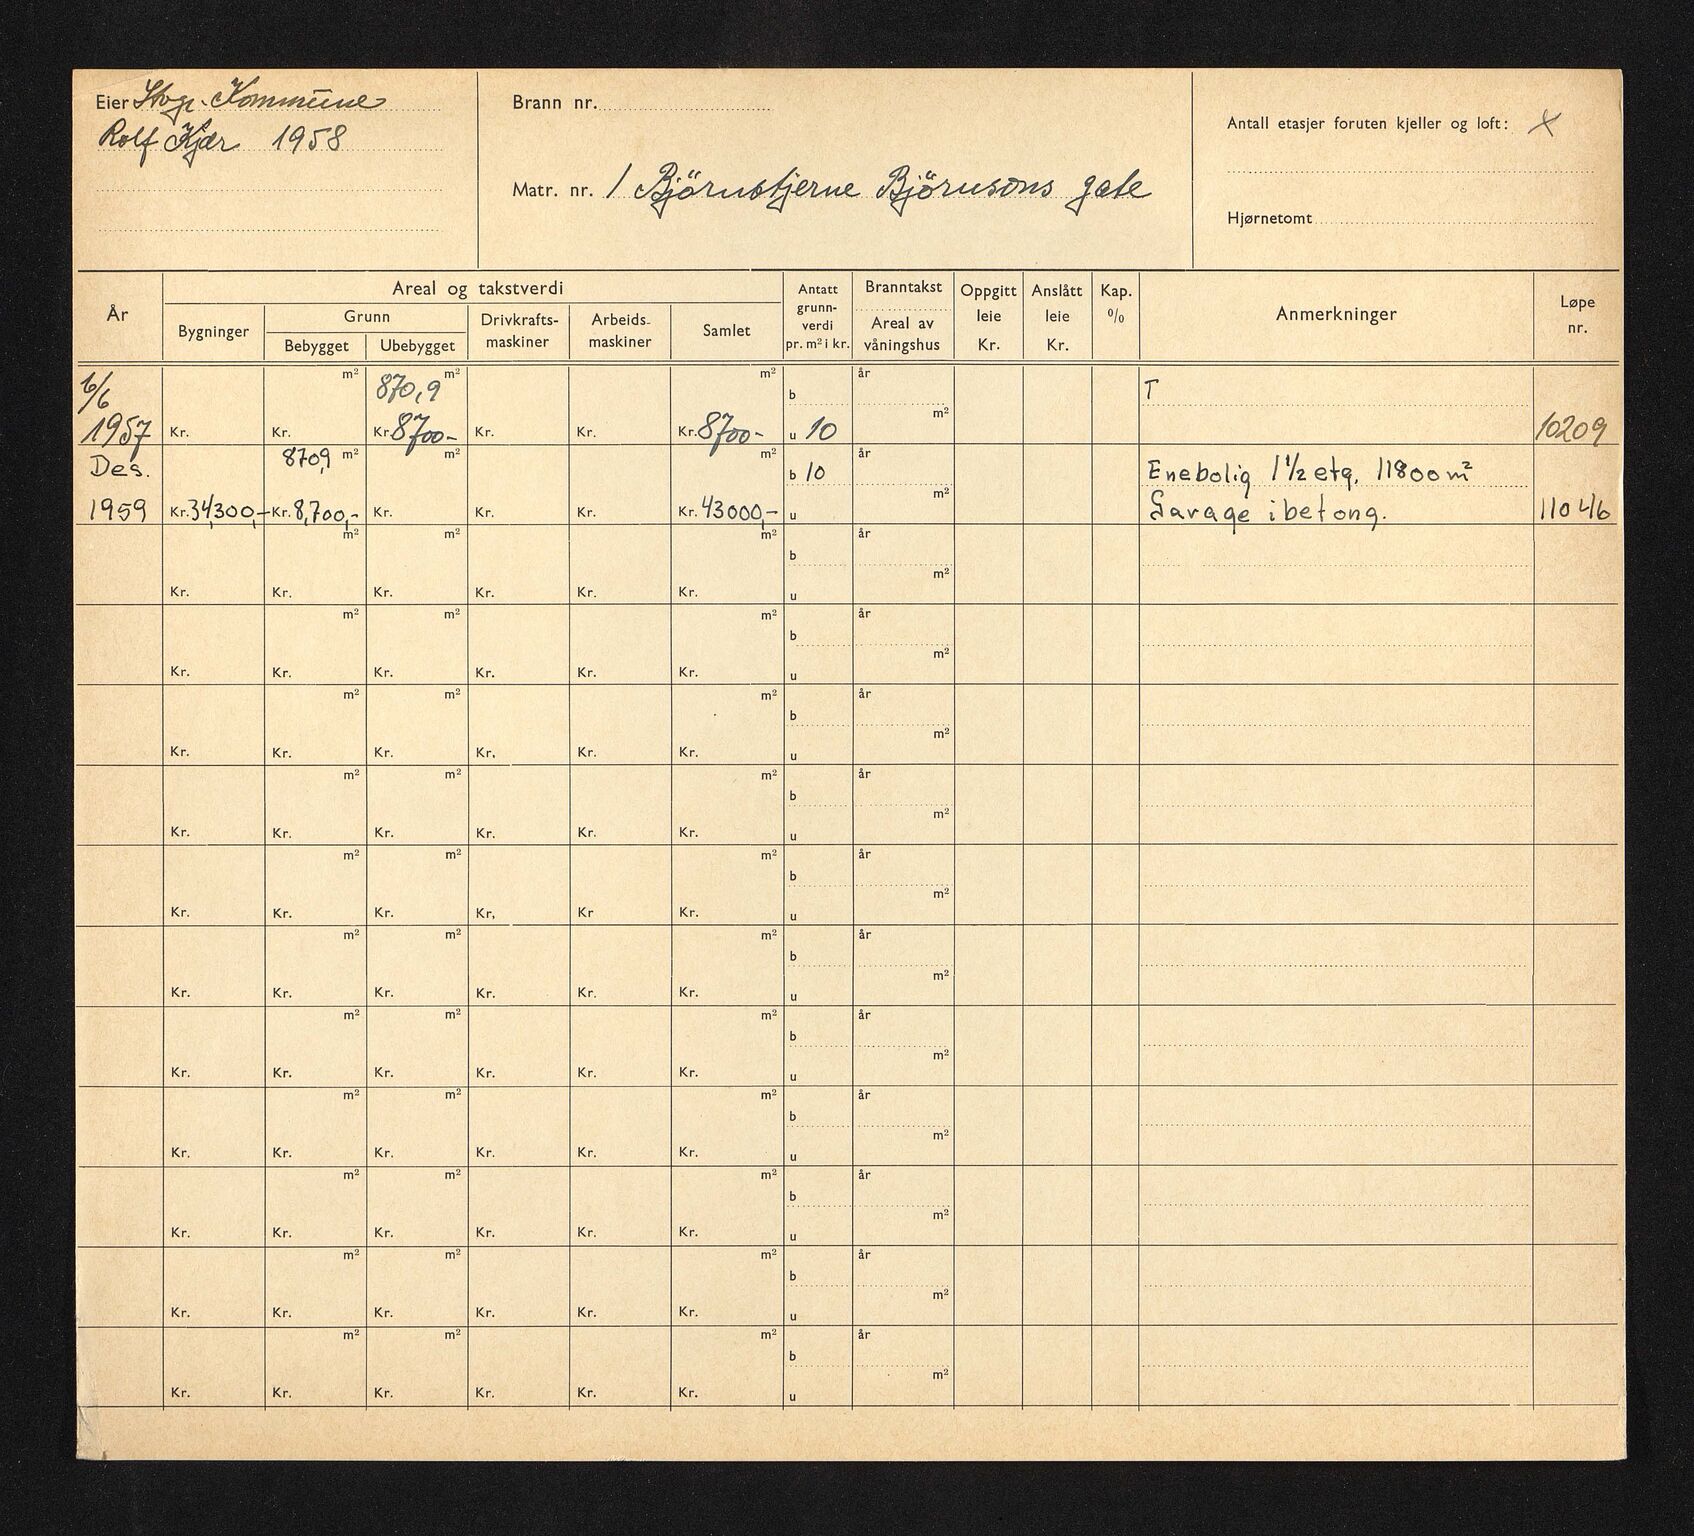 Eier Stvgr. Kommune
Rolf Kjær 1958
Brann nr.
Matr. nr. 1 Björnstjerne Björnsons gate
Antall etasjer foruten kjeller og loft: x
Hjørnetomt
År
Areal og takstverdi
Bygninger
Grunn
Bebygget Ubebygget
Drivkrafts-
maskiner
Arbeids-
maskiner
Samlet
Antatt
grunn-
verdi
pr. m² i kr.
Branntakst
Areal av
våningshus
Oppgitt
leie
Kr.
Anslått
leie
Kr.
Kap.
%
Anmerkninger
Løpe
nr.
6/6 m² 870,9 m² m² b år T
m²
1957 Kr. Kr. Kr. 8700- Kr. Kr. Kr. 8700- u 10 10209
Des. 870,9 m² m² m² b 10 år Enebolig 1 1/2 etg. 11800 m²
m²
1959 Kr. 34,300,- Kr. 8,700,- Kr. Kr. Kr. Kr. 43000,- u Garage i betong. 11046
m² m² m² b år
m²
Kr. Kr. Kr. Kr. Kr. Kr. u
m² m² m² b år
m²
Kr. Kr. Kr. Kr. Kr. Kr. u
m² m² m² b år
m²
Kr. Kr. Kr. Kr. Kr. Kr. u
m² m² m² b år
m²
Kr. Kr. Kr. Kr. Kr. Kr. u
m² m² m² b år
m²
Kr. Kr. Kr. Kr, Kr Kr. u
m² m² m² b år
m²
Kr. Kr. Kr. Kr. Kr. Kr. u
m² m² m² b år
m²
Kr. Kr. Kr. Kr. Kr. Kr. u
m² m² m² b år
m²
Kr. Kr. Kr. Kr. Kr. Kr. u
m² m² m² b år
m²
Kr. Kr. Kr. Kr. Kr. Kr. u
m² m² m² b år
m²
Kr. Kr. Kr. Kr. Kr. Kr. u
m² m² m² b år
m²
Kr. Kr. Kr. Kr. Kr. Kr. u